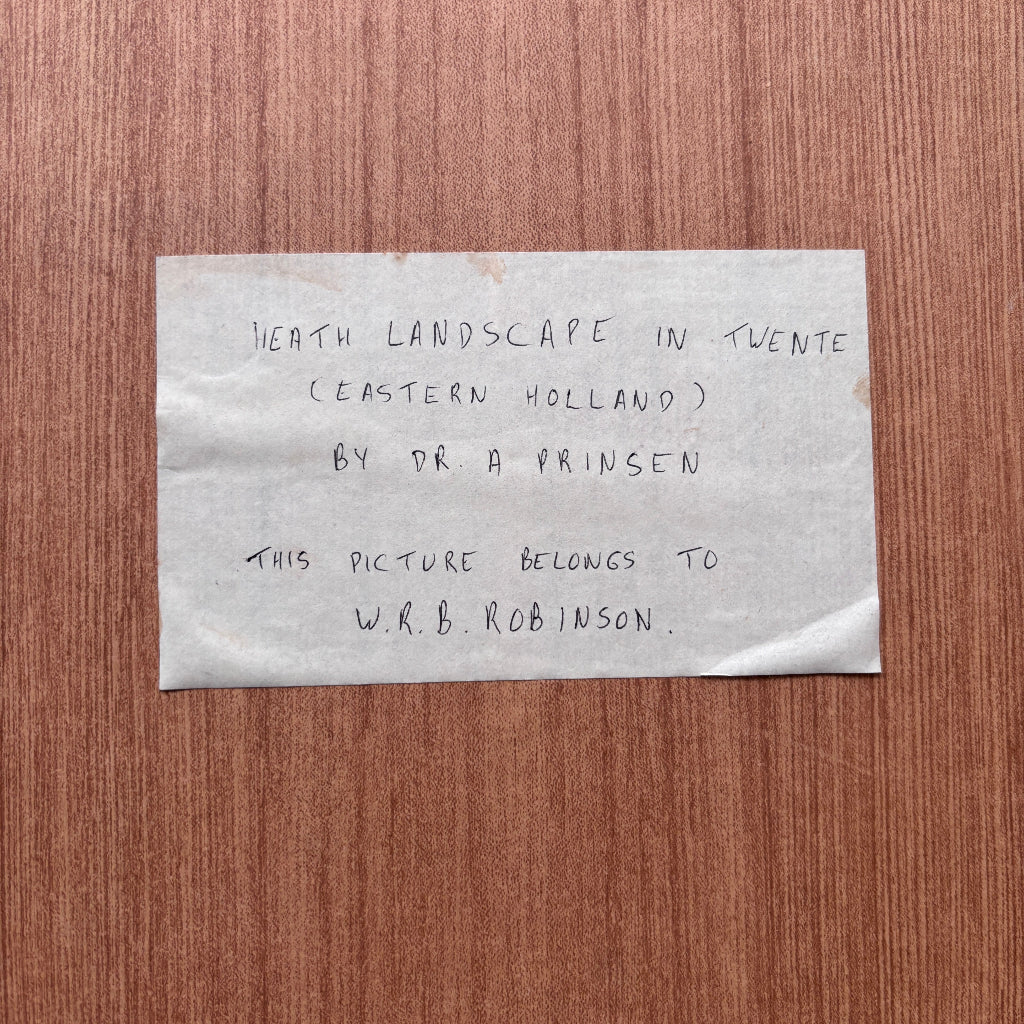 HEATH LANDSCAPE IN TWENTE
(EASTERN HOLLAND)
BY DR. A PRINSEN
THIS PICTURE BELONGS TO
W.R.B. ROBINSON.